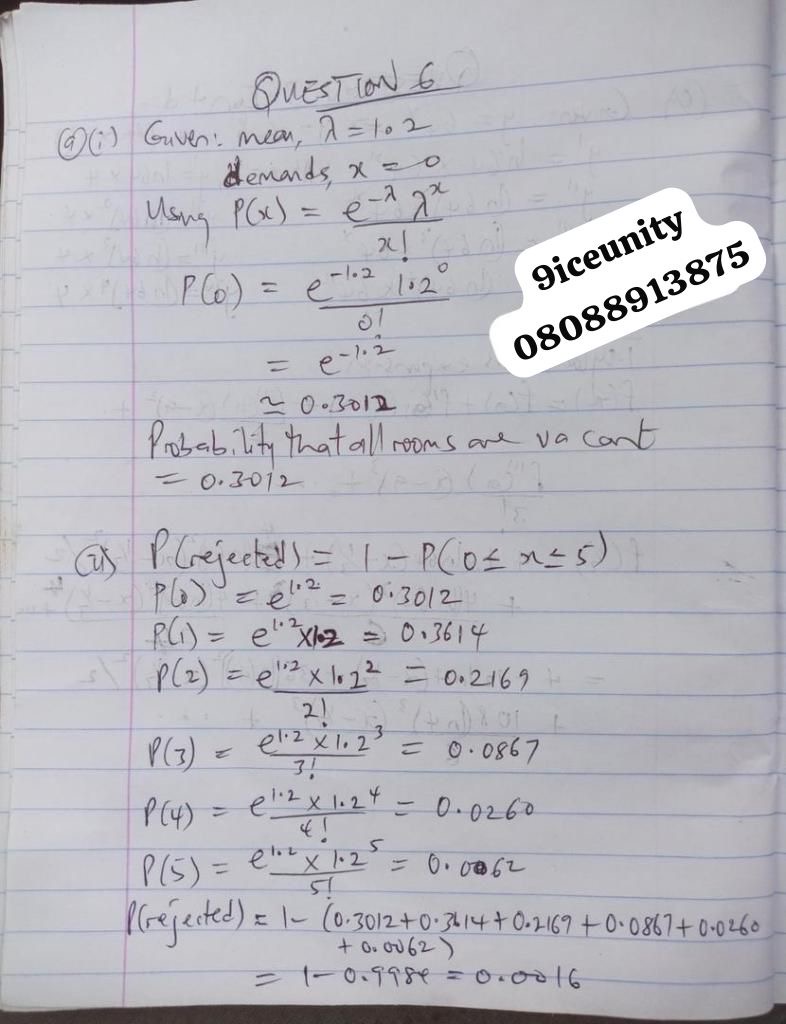 QUESTION 6
(a)(i) Given: mean, λ = 1.2
demands, x = 0
Using P(x) = e^-λ λ^x / x!
P(0) = e^-1.2 1.2^0 / 0!
= e^-1.2
≃ 0.3012
Probability that all rooms are vacant
= 0.3012
9iceunity
08088913875
(ii) P(rejected) = 1 - P(0 ≤ x ≤ 5)
P(0) = e^1.2 = 0.3012
P(1) = e^1.2 x 1.2 = 0.3614
P(2) = e^1.2 x 1.2^2 / 2! = 0.2169
P(3) = e^1.2 x 1.2^3 / 3! = 0.0867
P(4) = e^1.2 x 1.2^4 / 4! = 0.0260
P(5) = e^1.2 x 1.2^5 / 5! = 0.0062
P(rejected) = 1 - (0.3012 + 0.3614 + 0.2169 + 0.0867 + 0.0260
+ 0.0062)
= 1 - 0.9984 = 0.0016